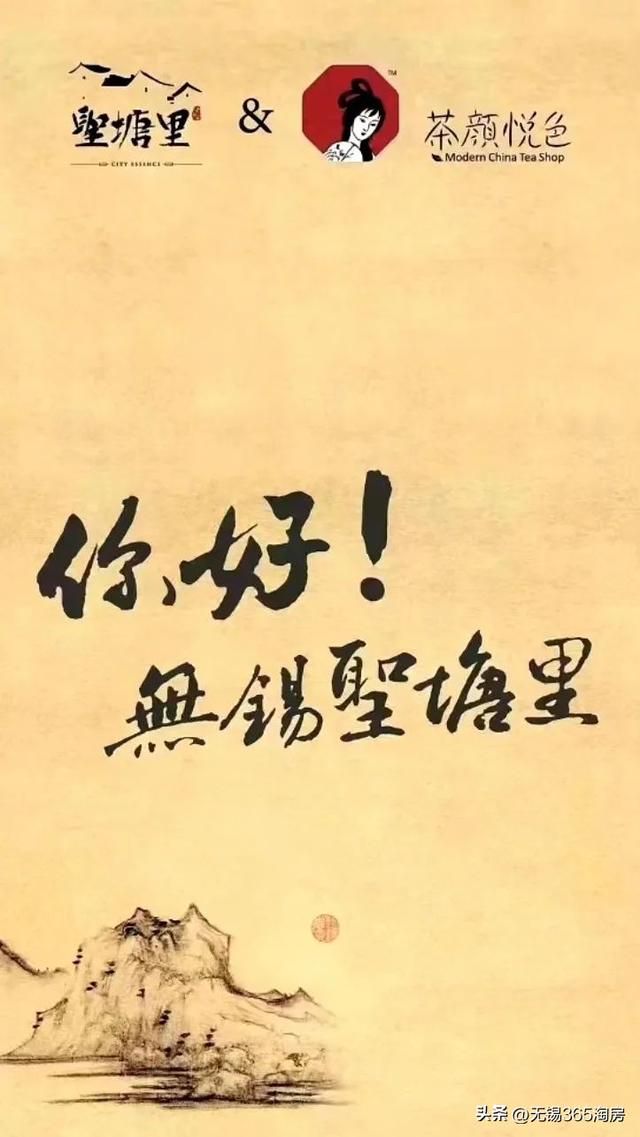 聖塘里 & 茶顔悦色
CITY ESSENCE
TM
Modern China Tea Shop
你好！
無錫聖塘里
头条 @无锡365淘房